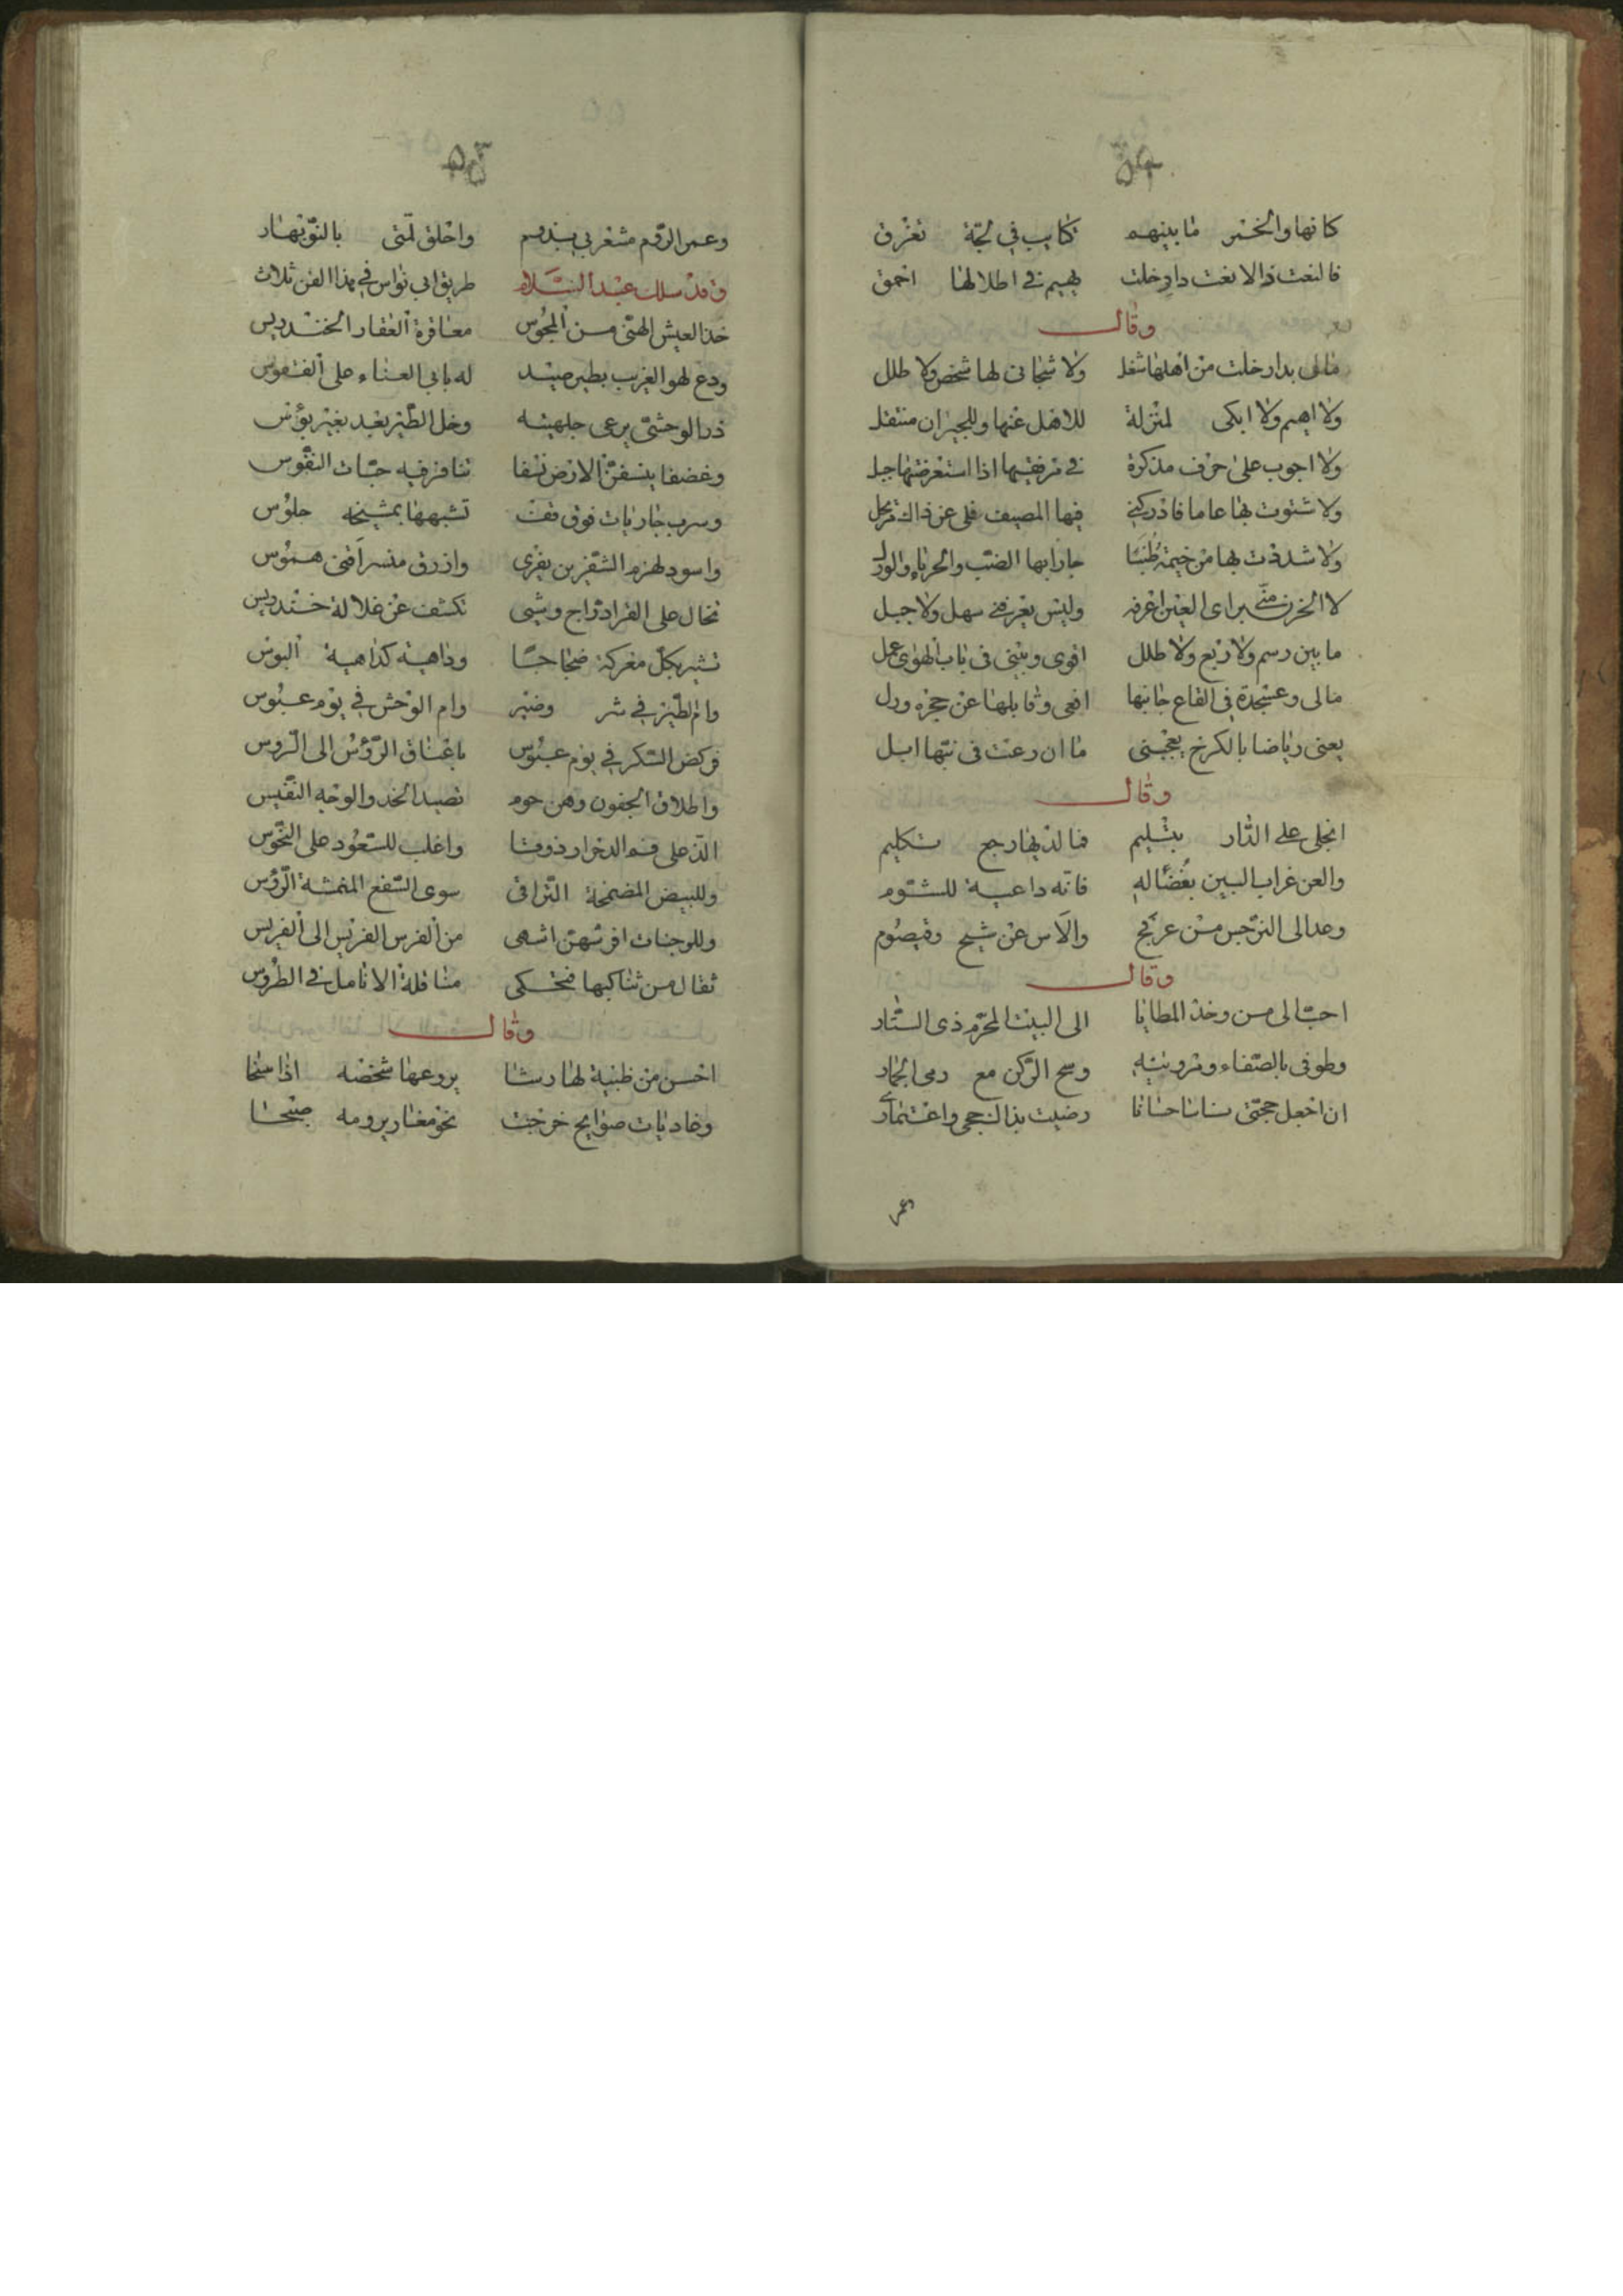 كانها والخمر ما بينهم كتايب في لجة تغرق
فالنعت ذا لا نعت دار خلت يهيم في اطلالها احمق
وقال
مالى بدار خلت من اهلها شغل ولا شجانى لها شخص ولا طلل
ولا اهيم ولا ابكى لمنزلة للاهل عنها وللجيران منتقل
ولا اجوب على حرف مذكرة في مرفقيها اذا استعرضتها
ولا شتوت بها عاما فادركنى فيها المصيف فلى عن ذاك مرتحل
ولا شددت بها من خيمة طنبا جارابها الضب والحرباء والورل
لا الحزن منى براى العين اعرفه وليس يعرفنى سهل ولا جبل
ما بين رسم ولا ربع ولا طلل اقوى وبينى فى باب الهوى عمل
مالى وعسجدة في القاع جانبها افعى وقابلها عن حجره ورل
يعنى رياضا بالكرخ يعجبنى ما ان رعت فى نبتها ابل
وقال
على الدار بتسليم فما لديها رجع تكليم
والعن غراب البين بغضا له فانه داعية للشوم
وعد الى النرجس من عرفج والآس عن شيح وقيصوم
وقال
احب الى من وخذ المطايا الى البيت المحرم ذى الستار
وطوفى بالصفاء ومروتيه ومسح الركن مع رمى الجمار
ان اجعل حجتى رضيت بذا لحجى واعتمارى
وعمر
٥٣
وعمر الروم مشعر بى واحلق لمتى بالنوبهار
وقد سلك عبد السلام طريق ابى نواس في هذا الفن ثلاث
خذ العيش الهنى من المجوس معاقرة العقار الخندريس
ودع لهو الغريب بطير صيد له باب العناء على النفوس
ذر الوحشى يرعى وخل الطير بعيد بغير بؤس
ينسفن الارض نسفا تنافر فيه حبات النفوس
وسرب جاريات فوق تشبهها بمشيخة جلوس
واسود لهزم الشفرين يفرى وازرق منسر اقنى هموس
تخال على القرا دراج وشى تكشف عن غلالة خندريس
تثير بكل معركة وداهية كداهية البوس
وام الطير في شر وضير وام الوحش في يوم عبوس
فركض السكر في يوم عبوس باعناق الرؤس الى الروس
واطلاق الجفون وهن حوم تصيد الخد والوجه النفيس
الذ على فم ذوقا واغلب للسعود على النحوس
وللبيض المضمخة التراقى سوى السفع الرؤس
وللوجنات افرشهن اشهى من الفرس الفريس الى الفريس
ثقال من فتحكى مناقلة الانامل في الطروس
وقال
احسن من ظبية لها رشا يروعها شخصه اذا سنحا
وغاديات صوايح خرجت نحو مغار يرومه صبحا